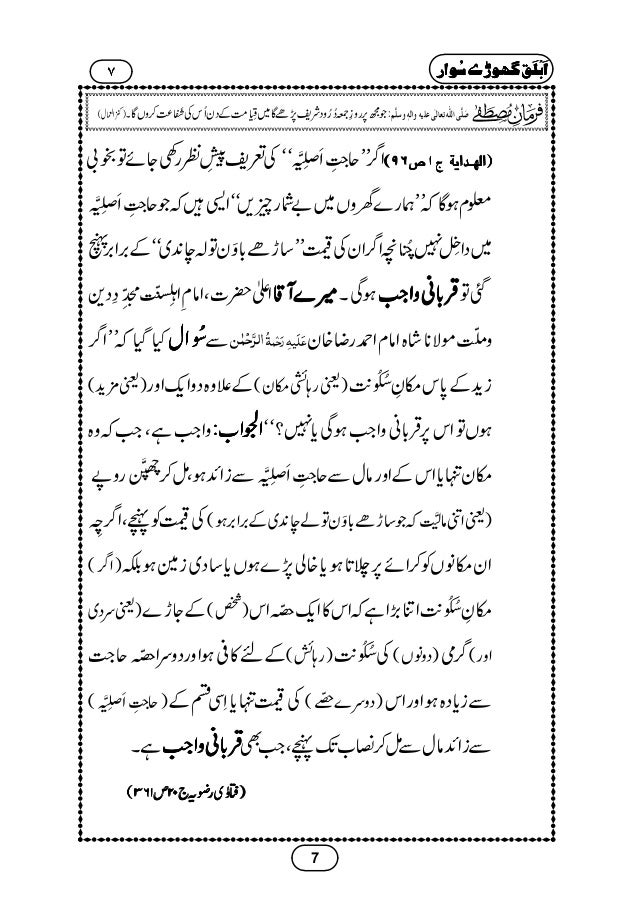 اَبلَق گھوڑے سُوار
۷
فرمانِ مصطَفٰے صلَّی اللہ تعالٰی علیہ والہٖ وسلَّم: جو مجھ پر روزِ جمعہ دُرُود شریف پڑھے گا میں قِیامت کے دن اُس کی شَفاعت کروں گا۔ (کنز العمال)
(الھدایۃ ج ۱ ص ۹۶) اگر ’’حاجتِ اَصلِیَّہ‘‘ کی تعریف پیشِ نظر رکھی جائے تو بخوبی
معلوم ہوگا کہ ’’ہمارے گھروں میں بے شمار چیزیں‘‘ ایسی ہیں کہ جو حاجتِ اَصلِیَّہ
میں داخِل نہیں چُنانچِہ اگر ان کی قیمت ’’ساڑھے باوَن تولہ چاندی‘‘ کے برابر پہنچ
گئی تو قربانی واجب ہوگی ۔ میرے آقا اعلیٰ حضرت، امامِ اہلسنّت مجدِّدِ دین
وملّت مولانا شاہ امام احمد رضا خان عَلَیہِ رَحمَۃُ الرَّحمٰن سے سُوال کیا گیا کہ ’’اگر
زید کے پاس مکانِ سُکُونت (یعنی رہائشی مکان) کے علاوہ دو ایک اور (یعنی مزید)
ہوں تو اس پر قربانی واجب ہوگی یا نہیں؟‘‘ الجواب: واجب ہے، جب کہ وہ
مکان تنہا یا اس کے اور مال سے حاجتِ اَصلِیَّہ سے زائد ہو، مل کر چھپَّن روپے
(یعنی اتنی مالیَّت کہ جو ساڑھے باوَن تولے چاندی کے برابر ہو) کی قیمت کو پہنچے، اگرچِہ
ان مکانوں کو کرائے پر چلاتا ہو یا خالی پڑے ہوں یا سادی زمین ہو بلکہ (اگر)
مکانِ سُکُونت اتنا بڑا ہے کہ اس کا ایک حصّہ اس (شخص) کے جاڑے (یعنی سردی
اور) گرمی (دونوں) کی سُکُونت (رہائش) کے لئے کافی ہو اور دوسرا حصّہ حاجت
سے زیادہ ہو اور اس (دوسرے حصّے) کی قیمت تنہا یا اِسی قسم کے (حاجتِ اَصلِیَّہ)
سے زائد مال سے مل کر نصاب تک پہنچے، جب بھی قربانی واجب ہے۔
(فتاوٰی رضویہ ج ۲۰ ص ۳۶۱)
7